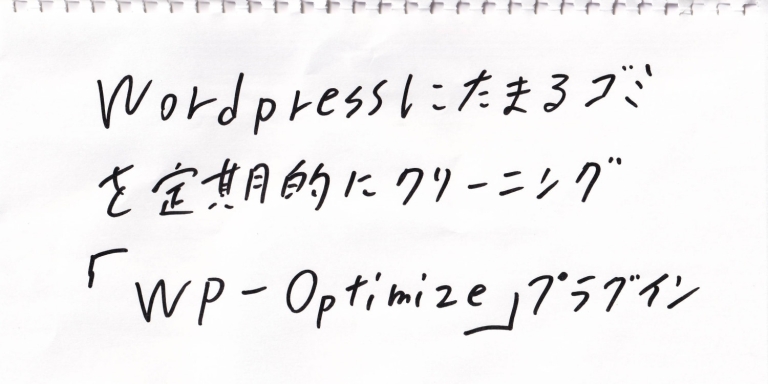 Wordpressにたまるゴミ
を定期的にクリーニング
「WP-Optimize」プラグイン